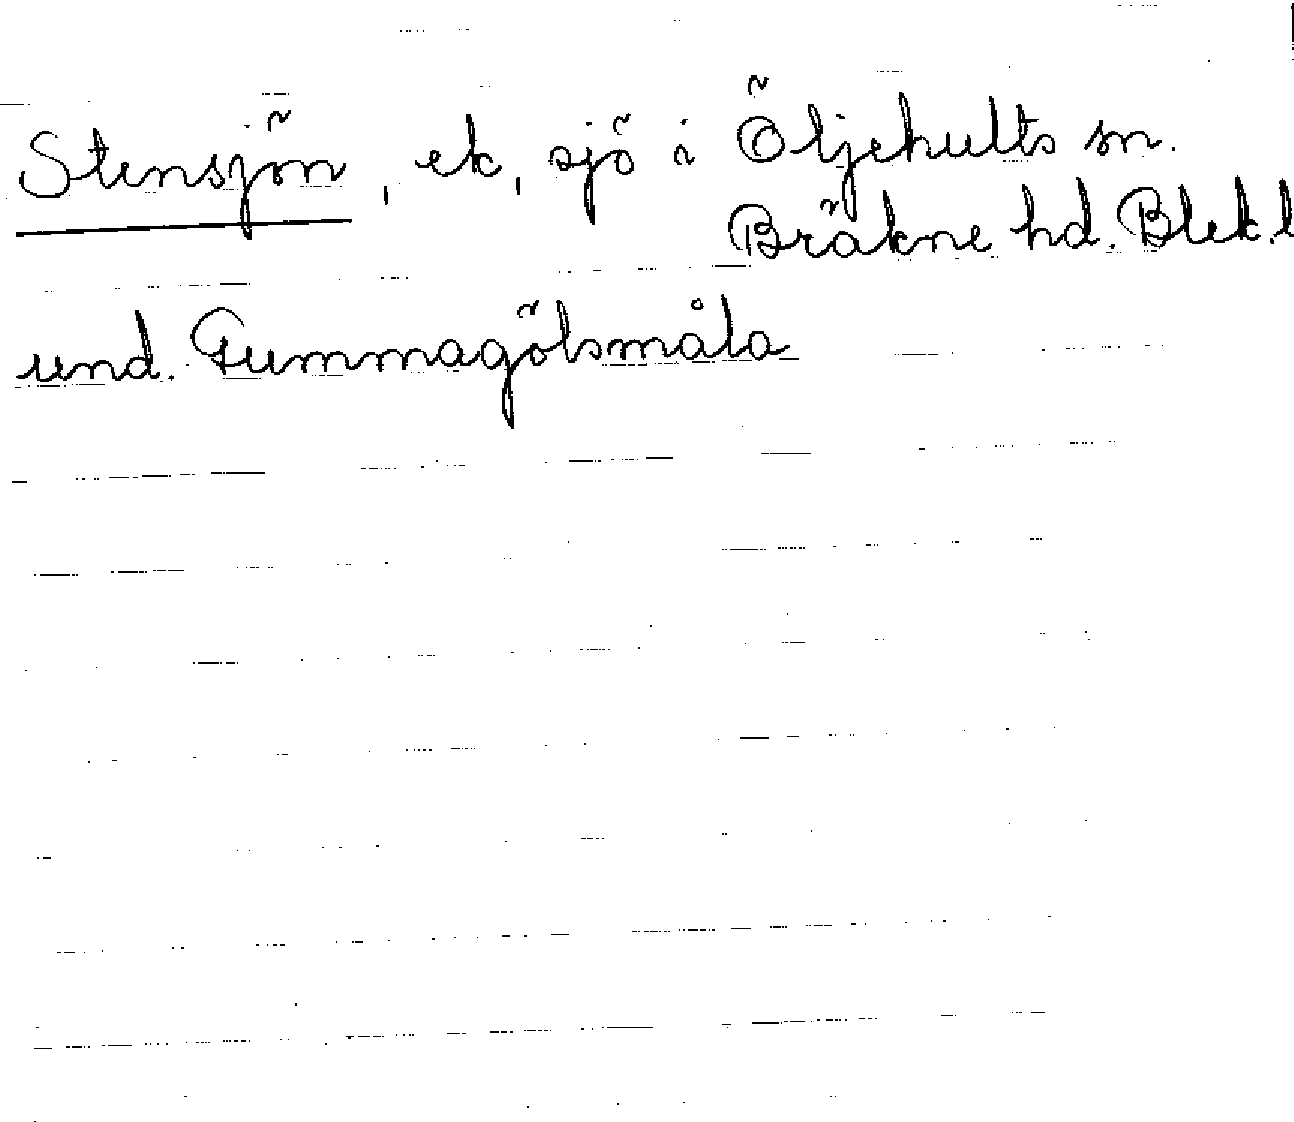 Stensjön, ek, sjö i Öljehults sn.
Bräkne hd. Blek.l
und. Gummagölsmåla